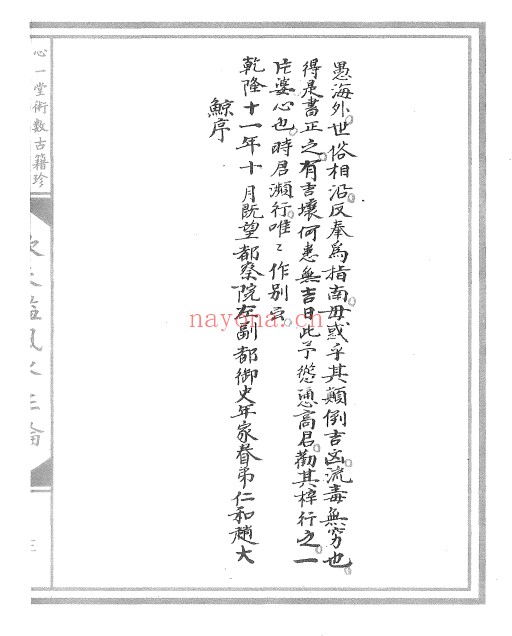 愚海外世俗相沿反奉為指南毋或乎其顛倒吉凶流毒無窮也
得是書正之有吉壤何患無吉日此予慫恿高君勸其梓行之一
片婆心也時君瀕行唯〻作別云
乾隆十一年十月既望都察院左副都御史年家眷弟仁和趙大
鯨序
心一堂術數古籍珍
欽天監風水正論
三
nayona.cn